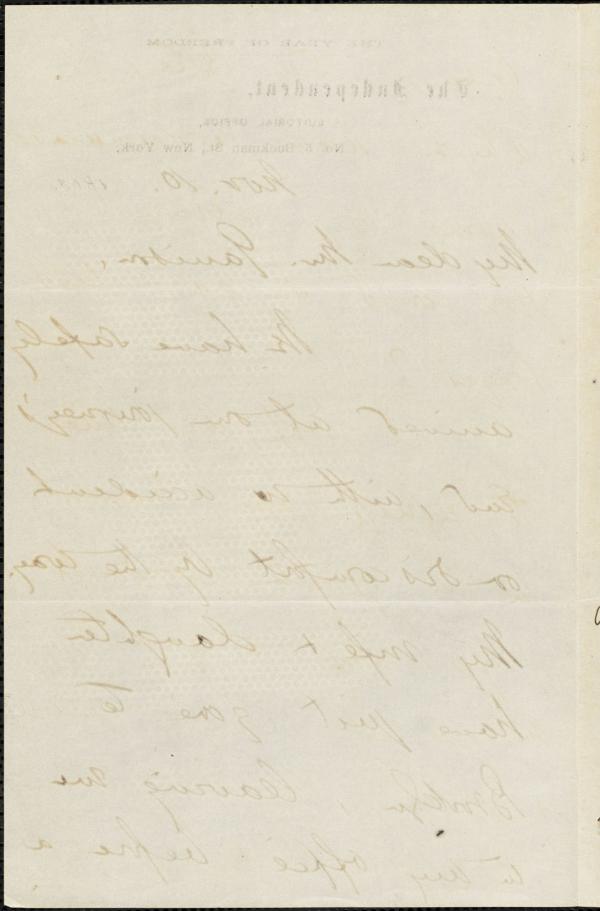 THE YEAR OF FREEDOM
The Independent,
EDITORIAL OFFICE,
No. 5 Beekman St., New York,
Nov. 10. 186
My dear Mr. Garrison,
We have safely
arrived at our journey's
end, with no accident
or discomfort by the way.
My wife & daughter
have just gone to
Brooklyn, leaving me
to my office before a